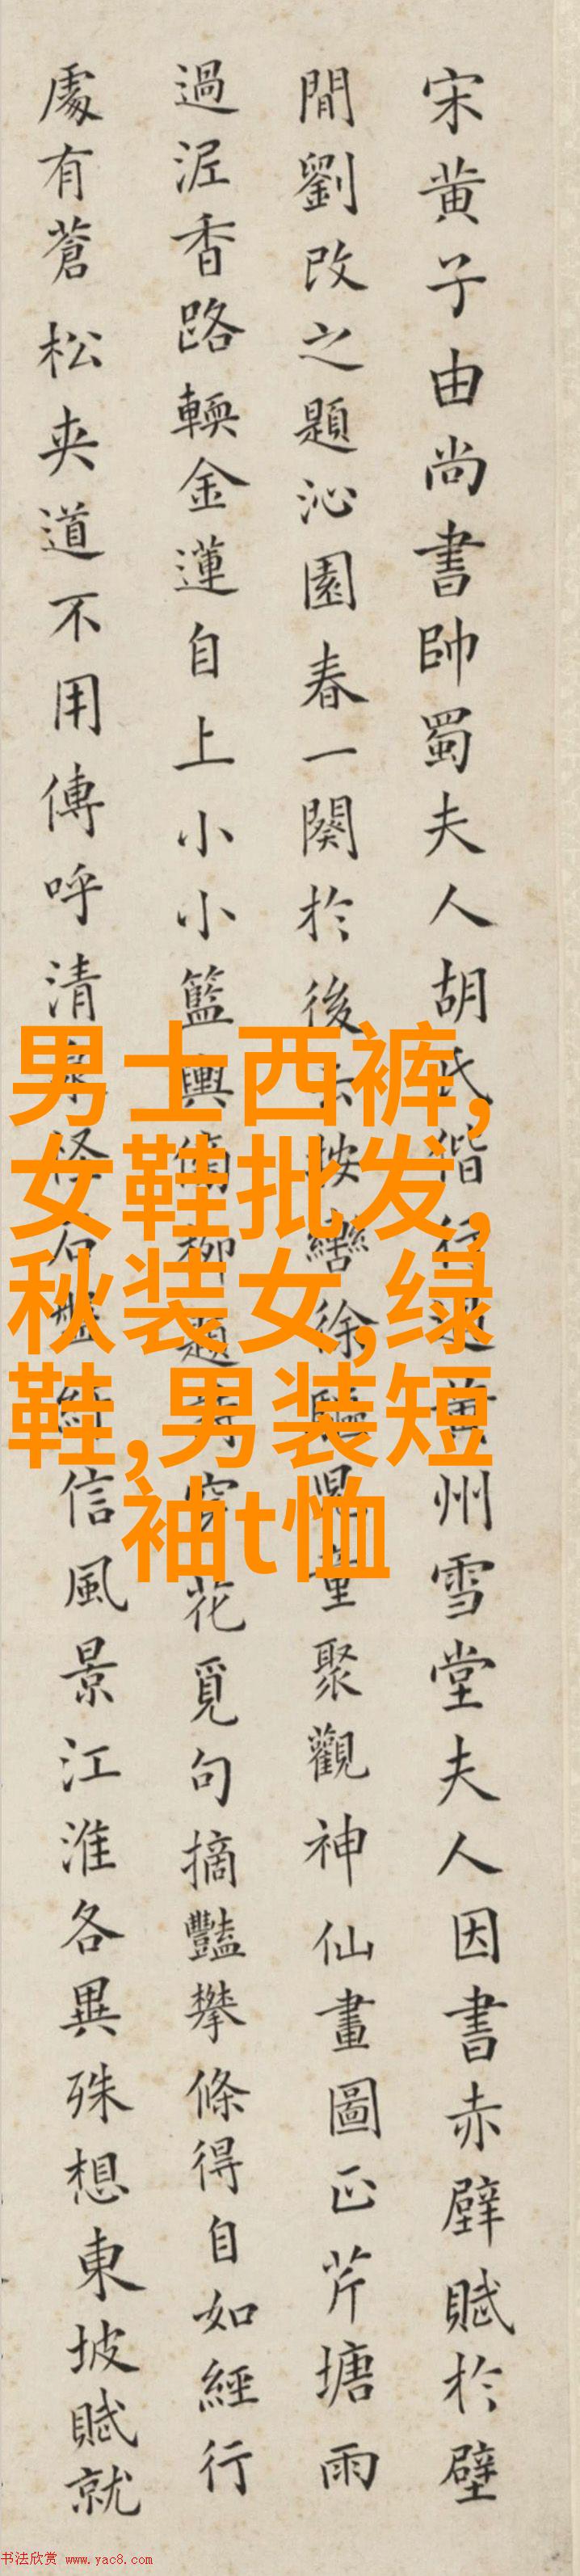 宋黄子由尚書帥蜀夫人胡氏偕行過黄州雪堂夫人因書赤壁賦於壁
間劉改之題沁園春一闋於後云按轡徐驅兒童聚觀神仙畫圖正芹塘雨
過泥香路輭金蓮自上小小籃輿傍柳題詩穿花覓句摘豔攀條得自如經行
處有蒼松夾道不用傳呼清泉怪石盤紆信風景江淮各異殊想東坡賦就
男士西裤,
女鞋批发,
秋装女,绿
鞋,男装短
袖t恤
书法欣赏 www.yac8.com